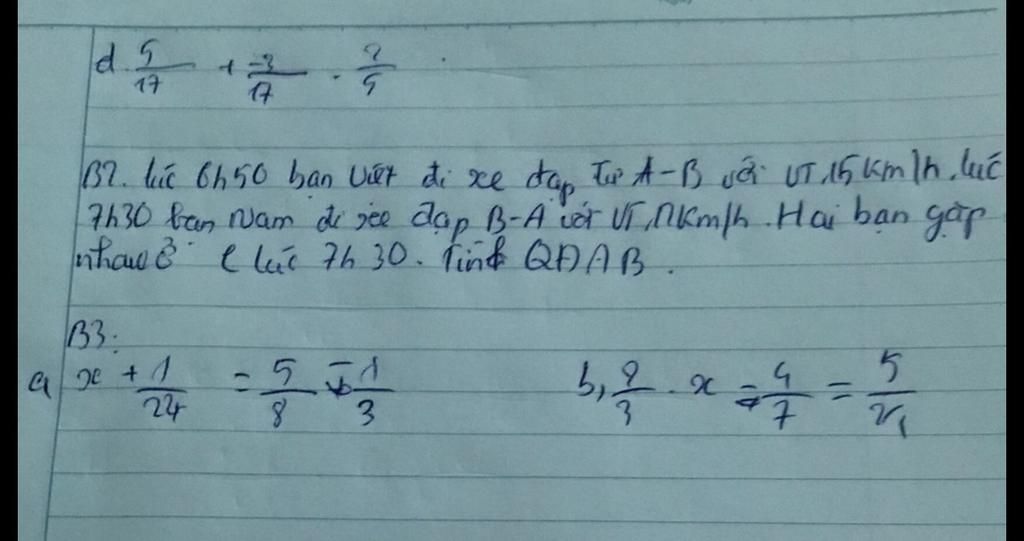 d. 5/17 + -3/17 . 2/5
B2. lúc 6h50 bạn Việt đi xe đạp Từ A-B với VT, 15 km/h. lúc
7h30 bạn Nam đi xe đạp B-A với VT, km/h. Hai bạn gặp
nhau ở C lúc 7h30. Tính QĐ AB.
B3:
a, x + 1/24 = 5/8 1/3
b, 2/3 . x - 4/7 = 5/21